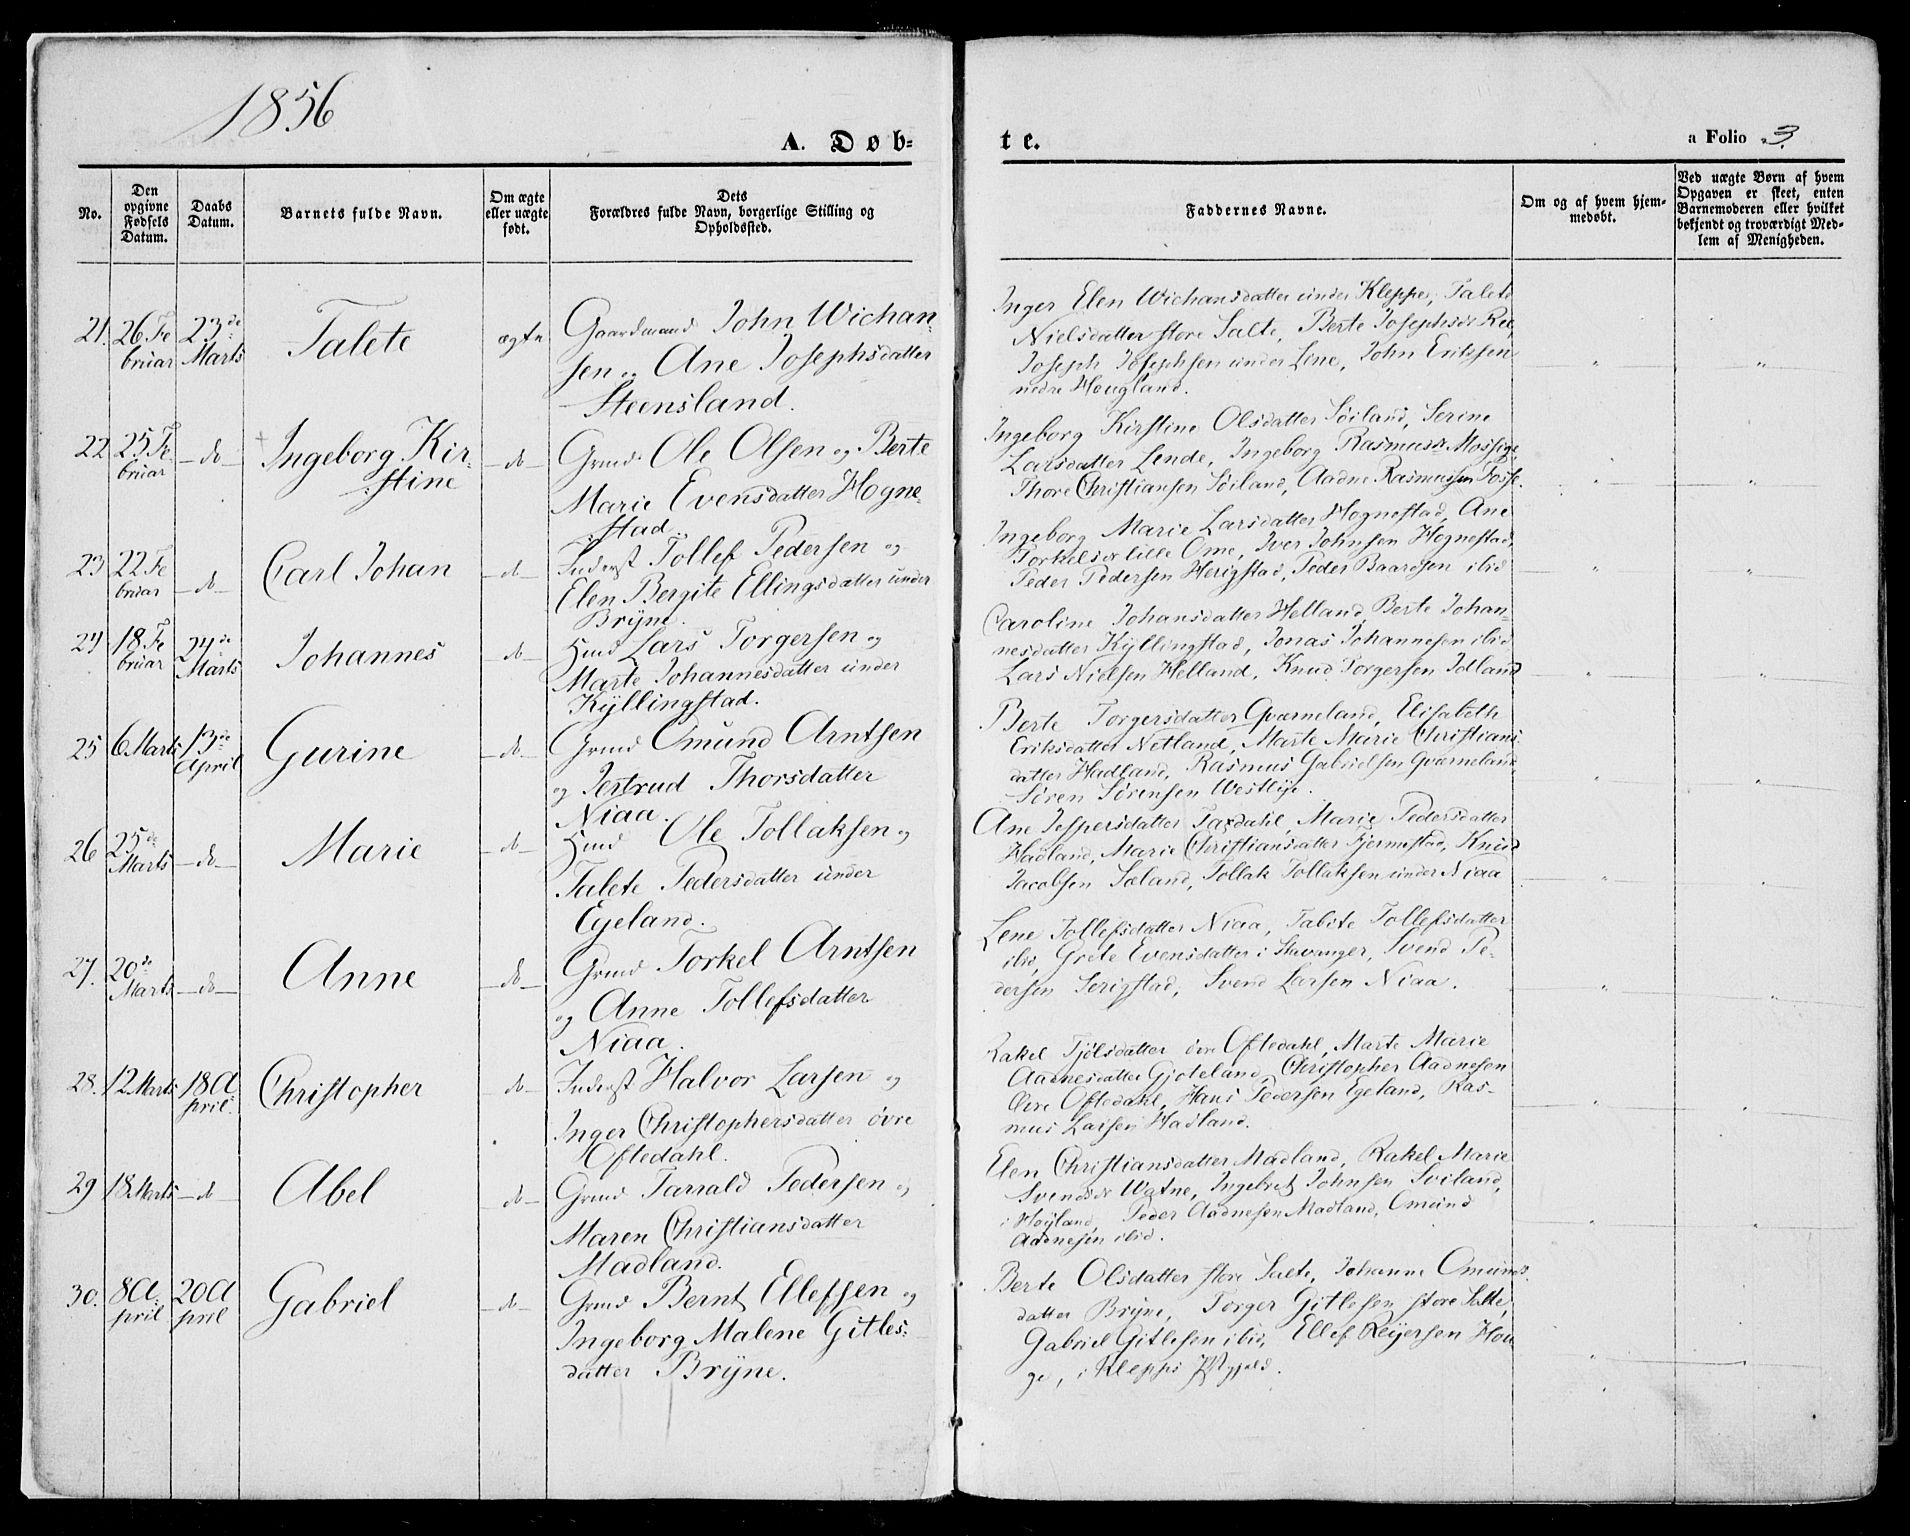 1856
A. Døb-
te.
a Folio 3.
No.
Den
opgivne
Fødsels
Datum.
Daabs
Datum.
Barnets fulde Navn.
Om ægte
eller uægte
født.
Dets
Forældres fulde Navn, borgerlige Stilling og
Opholdssted.
Faddernes Navne.
Om og af hvem hjem-
medøbt.
Ved uægte Børn af hvem
Opgaven er skeet, enten
Barnemoderen eller hvilket
bekjendt og troværdigt Med-
lem af Menigheden.
21. 26 Fe
bruar
23de
Marts
Talete
ægte
Gaardmand John Wichan-
sen og Ane Josephsdatter
Steensland.
Inger Elen Wichansdatter under Kleppe, Talete
Nielsdatter store Salte, Berte Josephsdr Ree,
Joseph Josephsen under Line, John Eriksen
nedre Hougland.
22 25 Fe-
bruar
-do-
Ingeborg Kir-
stine
-do-
Grmd. Ole Olsen og Berte
Marie Evensdatter Hogne-
stad.
Ingeborg Kirstine Olsdatter Søiland, Serine
Larsdatter Lende, Ingeborg Rasmusdr Mossige,
Thore Christiansen Søiland, Aadne Rasmussen Fosse.
23 22 Fe
bruar
-do-
Carl Johan
-do-
Inderst Tollef Pedersen og
Elen Bergite Ellingsdatter under
Bryne.
Ingeborg Marie Larsdatter Hognestad, Ane
Torkelsdr lille Ome, Iver Johnsen Hognestad,
Peder Pedersen Herigstad, Peder Baardsen ibid
24 18 Fe
bruar
24de
Marts
Johannes
-do-
Hmd Lars Torgersen og
Marte Johannesdatter under
Kyllingstad.
Caroline Johansdatter Helland, Berte Johan-
nesdatter Kyllingstad, Jonas Johannesen ibid
Lars Nielsen Helland, Knud Torgersen Idland
25 6 Marts
13de
April
Gurine
-do-
Grmd Omund Arntsen
og Jertrud Thorsdatter
Niaa.
Berte Torgersdatter Qværneland, Elisabeth
Eriksdatter Netland, Marte Marie Christians
datter Hadland, Rasmus Gabrielsen Qværneland,
Søren Sørensen Westlye.
26 25de
Marts
-do-
Marie
-do-
Hmd Ole Tollaksen og
Talete Pedersdatter under
Egeland.
Ane Jespersdatter Taxdahl, Marie Pedersdatter
Hadland, Marie Christiansdatter Fjermestad, Knud
Jacobsen Sæland, Tollak Tollaksen under Niaa
27. 20de
Marts
-do-
Anne
-do-
Grmd Torkel Arntsen
og Anne Tollefsdatter
Niaa.
Lene Tollefsdatter Niaa, Tabite Tollefsdatter
ibid, Grete Evensdatter i Stavanger, Svend Pe-
dersen Serigstad, Svend Larsen Niaa.
28. 12 Marts
18 A
pril.
Christopher
-do-
Inderst Halvor Larsen og
Inger Christophersdatter øvre
Oftedahl.
Rakel Tjølsdatter øvre Oftedahl, Marte Marie
Aadnesdatter Gjoteland, Christopher Aadnesen
øvre Oftedahl, Hans Pedersen Egeland, Ras-
mus Larsen Hadland.
29 18 Marts
-do-
Abel
-do-
Grmd Tarrald Pedersen og
Maren Christiansdatter
Madland.
Elen Christiansdatter Madland, Rakel Marie
Svendsdr Watne, Ingebret Johnsen Sviland,
i Høyland, Peder Aadnesen Madland, Omund
Aadnesen ibid.
30. 8 A-
pril
20 A
pril
Gabriel
-do-
Grmd Bernt Ellefsen og
Ingeborg Malene Gitles-
datter Bryne.
Berte Olsdatter store Salte, Johanne Omunds-
datter Bryne, Torger Gitlesen store Salte,
Gabriel Gitlesen ibid, Ellef Reyersen Hou
ge, i Klepps Pstgjeld.